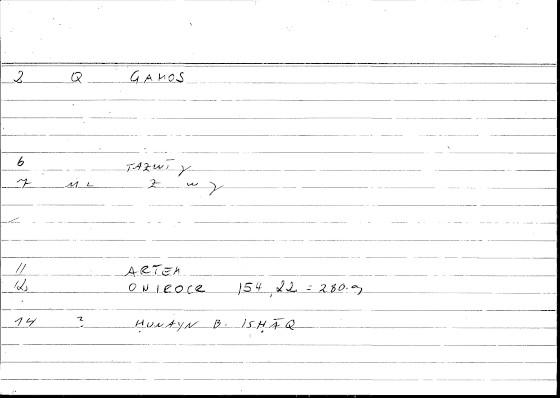 2 Q GAMOS
6 TAZWĪǦ
7 ML Z W Ǧ
11 ARTEM
12 ONIROCR 154,22 = 280.9
14 ? ḤUNAYN B. ISḤĀQ